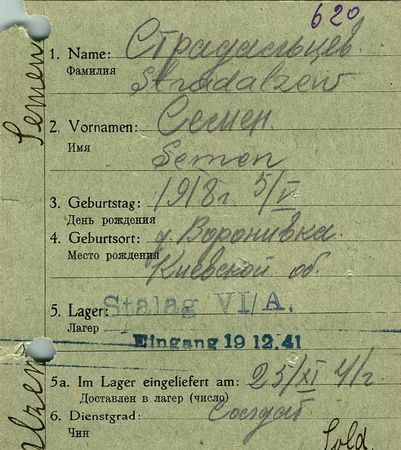 620
Semen
1. Name: Страдальцев
Фамилия
Stradalzew
2. Vornamen: Семен.
Имя
Semen
3. Geburtstag: 1918г 5/V
День рождения
4. Geburtsort: д. Воронивка
Место рождения
Киевской об.
5. Lager: Stalag VI/A.
Лагер
Eingang 19 12. 41
5a. Im Lager eingeliefert am: 25/XI 41г
Доставлен в лагер (число)
6. Dienstgrad: Солдат
Чин
Sold.
alzen